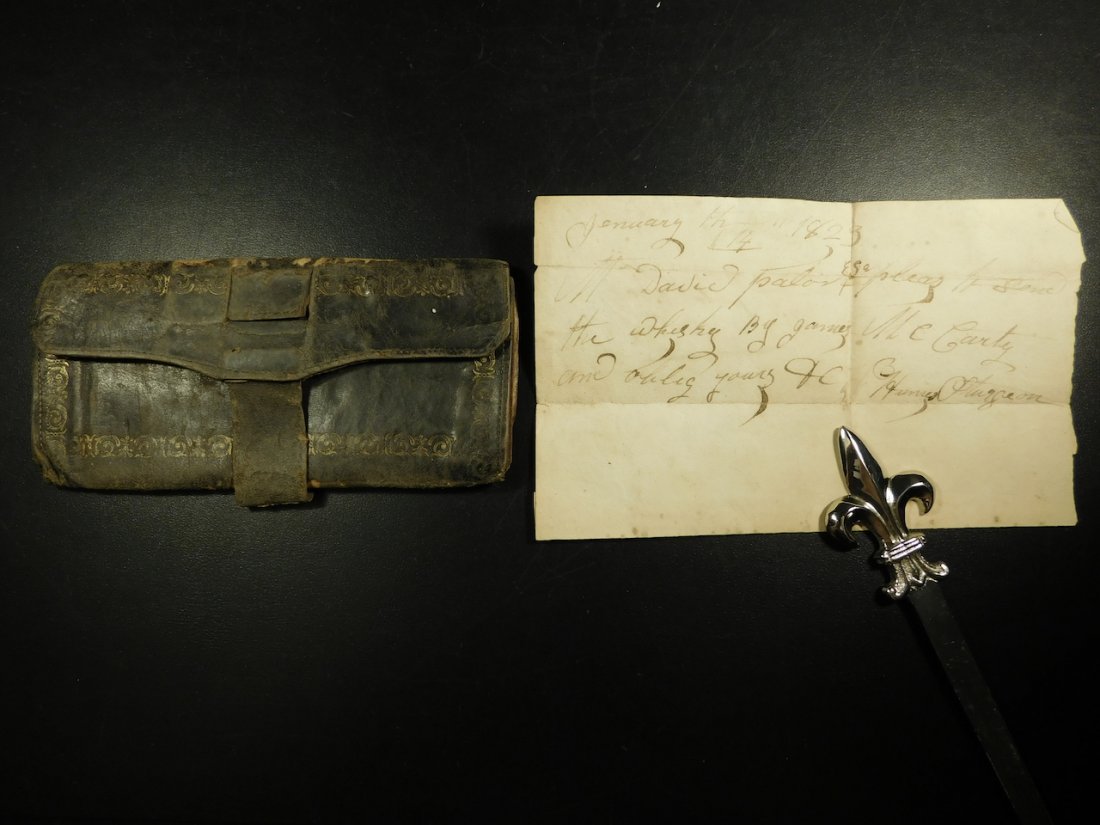 Jenuary th 14 1823
Mr David pator Esq pleas to send
the whisky By James Mc Carty
and oblig yours &C